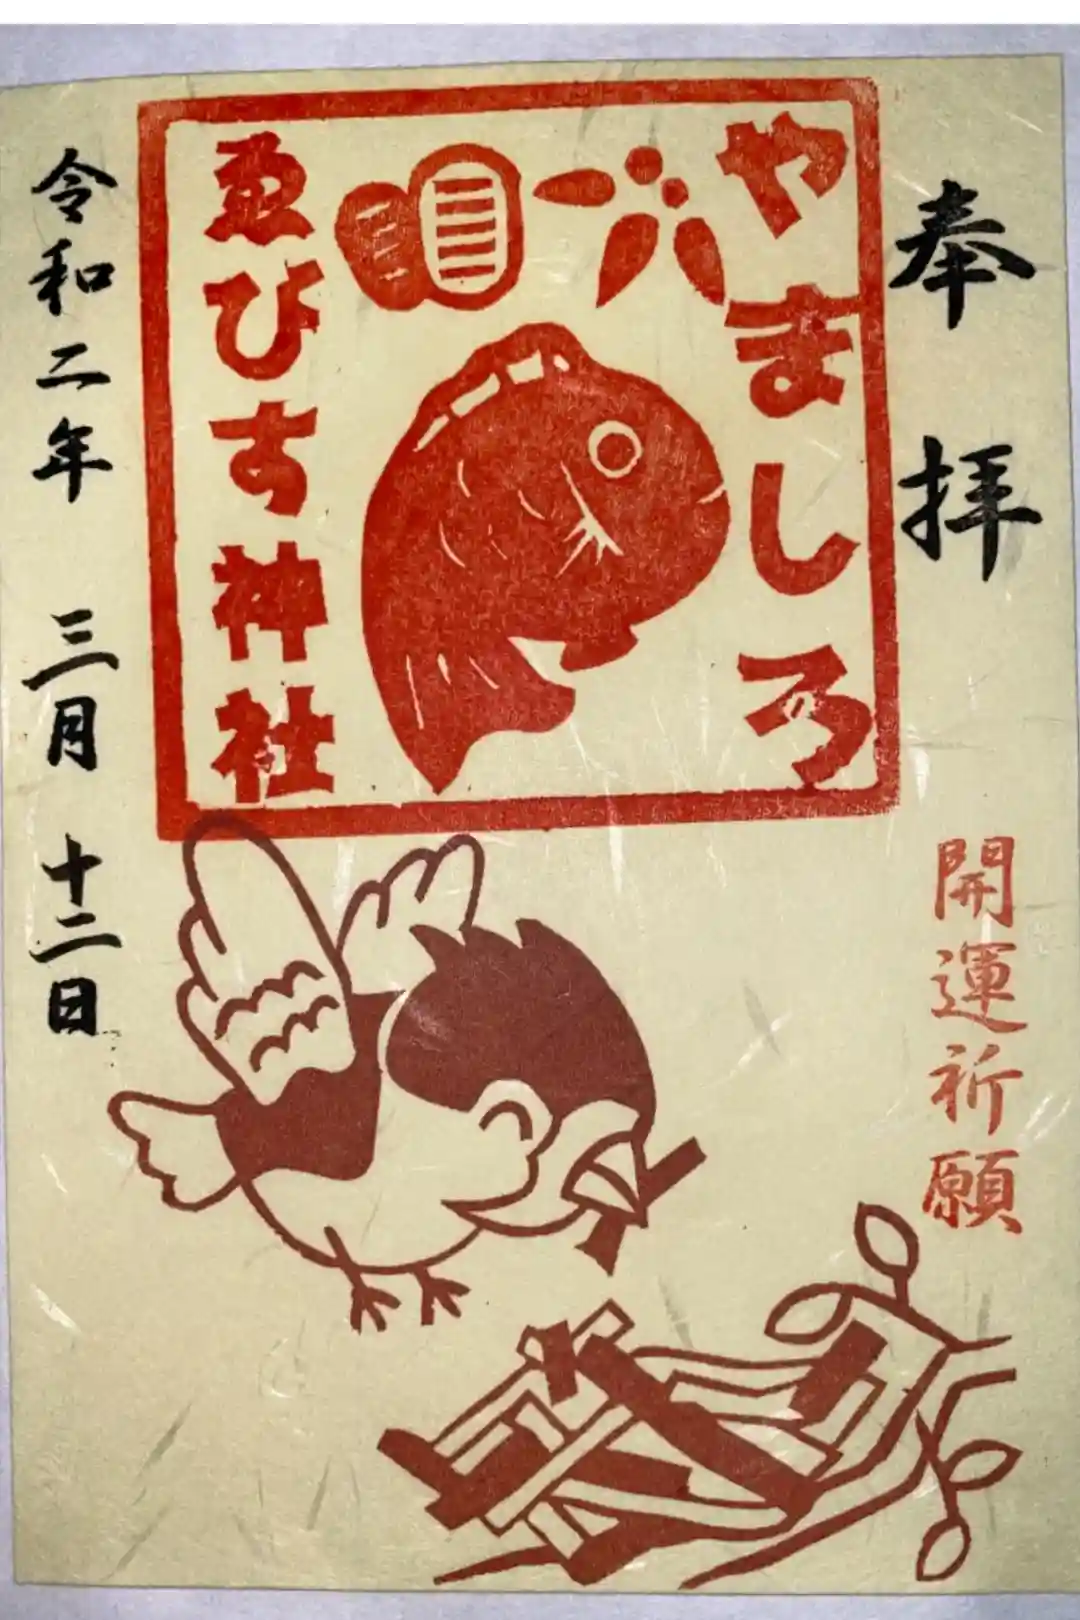 奉拝
やましろ
ゑびす神社
令和二年 三月 十二日
開運祈願